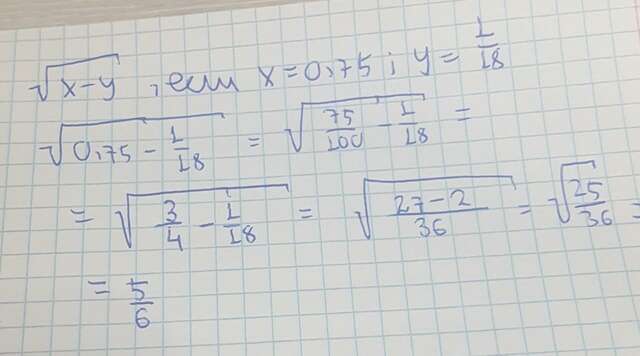 √(x-y) , если x=0,75 ; y= 1/18
√(0,75 - 1/18) = √(75/100 - 1/18) =
= √(3/4 - 1/18) = √((27-2)/36) = √(25/36) =
= 5/6